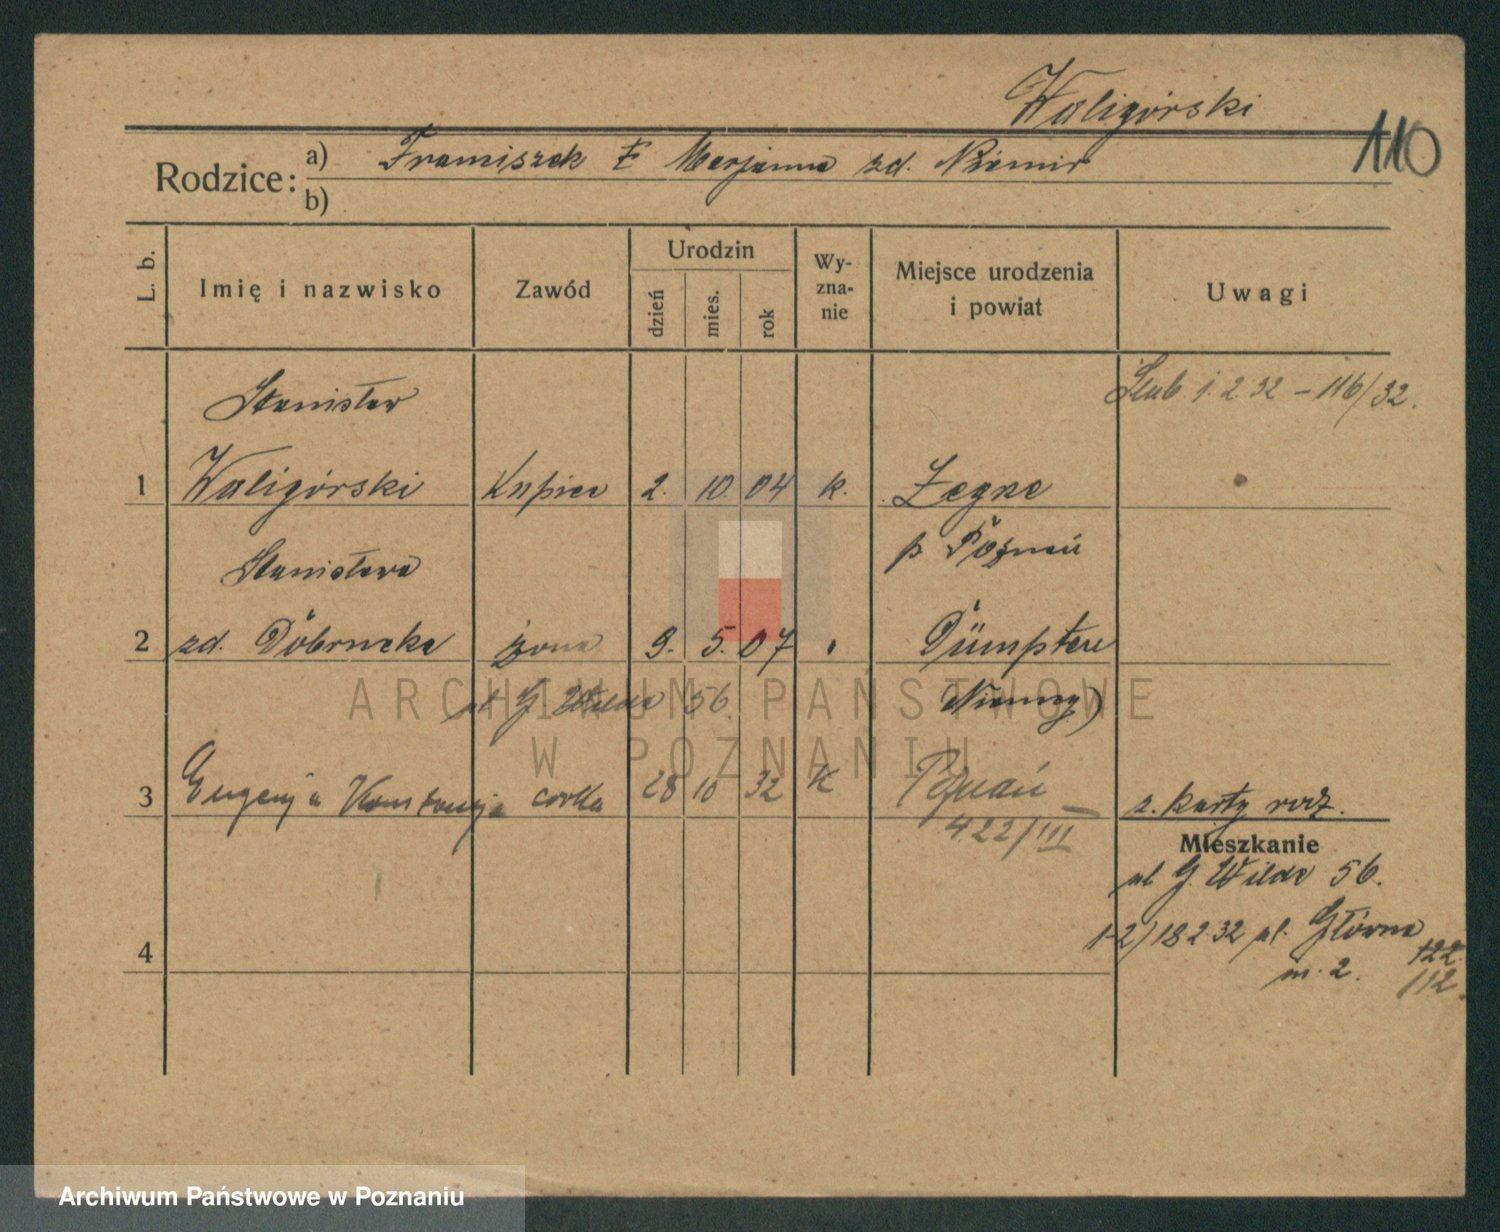 Waligórski
110
Rodzice: a) Franciszek i Marjanna zd. Niemir
b)
L. b. Imię i nazwisko Zawód Urodzin dzień mies. rok Wy-zna-nie Miejsce urodzenia i powiat Uwagi
Stanisław Ślub 1.2 32 – 116/32.
1 Waligórski Kupiec 2. 10. 04 k. Żegrze
Stanisława p. Poznań
2 zd. Dobrucka żona 9. 5. 07 Dümptern
ul G Wilda 56 Niemcy)
3 Eugenja Konstancja corka 28 10 32 k Poznań
z. karty rodz.
422/III
Mieszkanie
ul G. Wilda 56.
4 1-2/18 2.32 ul. Główna
122
m. 2. 112.
ARCHIWUM PAŃSTWOWE
W POZNANIU
Archiwum Państwowe w Poznaniu